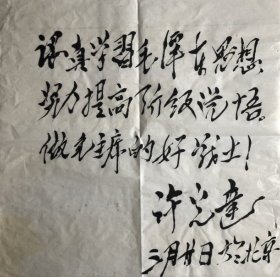 认真学習毛泽东思想
努力提高阶级觉悟
做毛主席的好战士！
许光達
三月廿日於北京